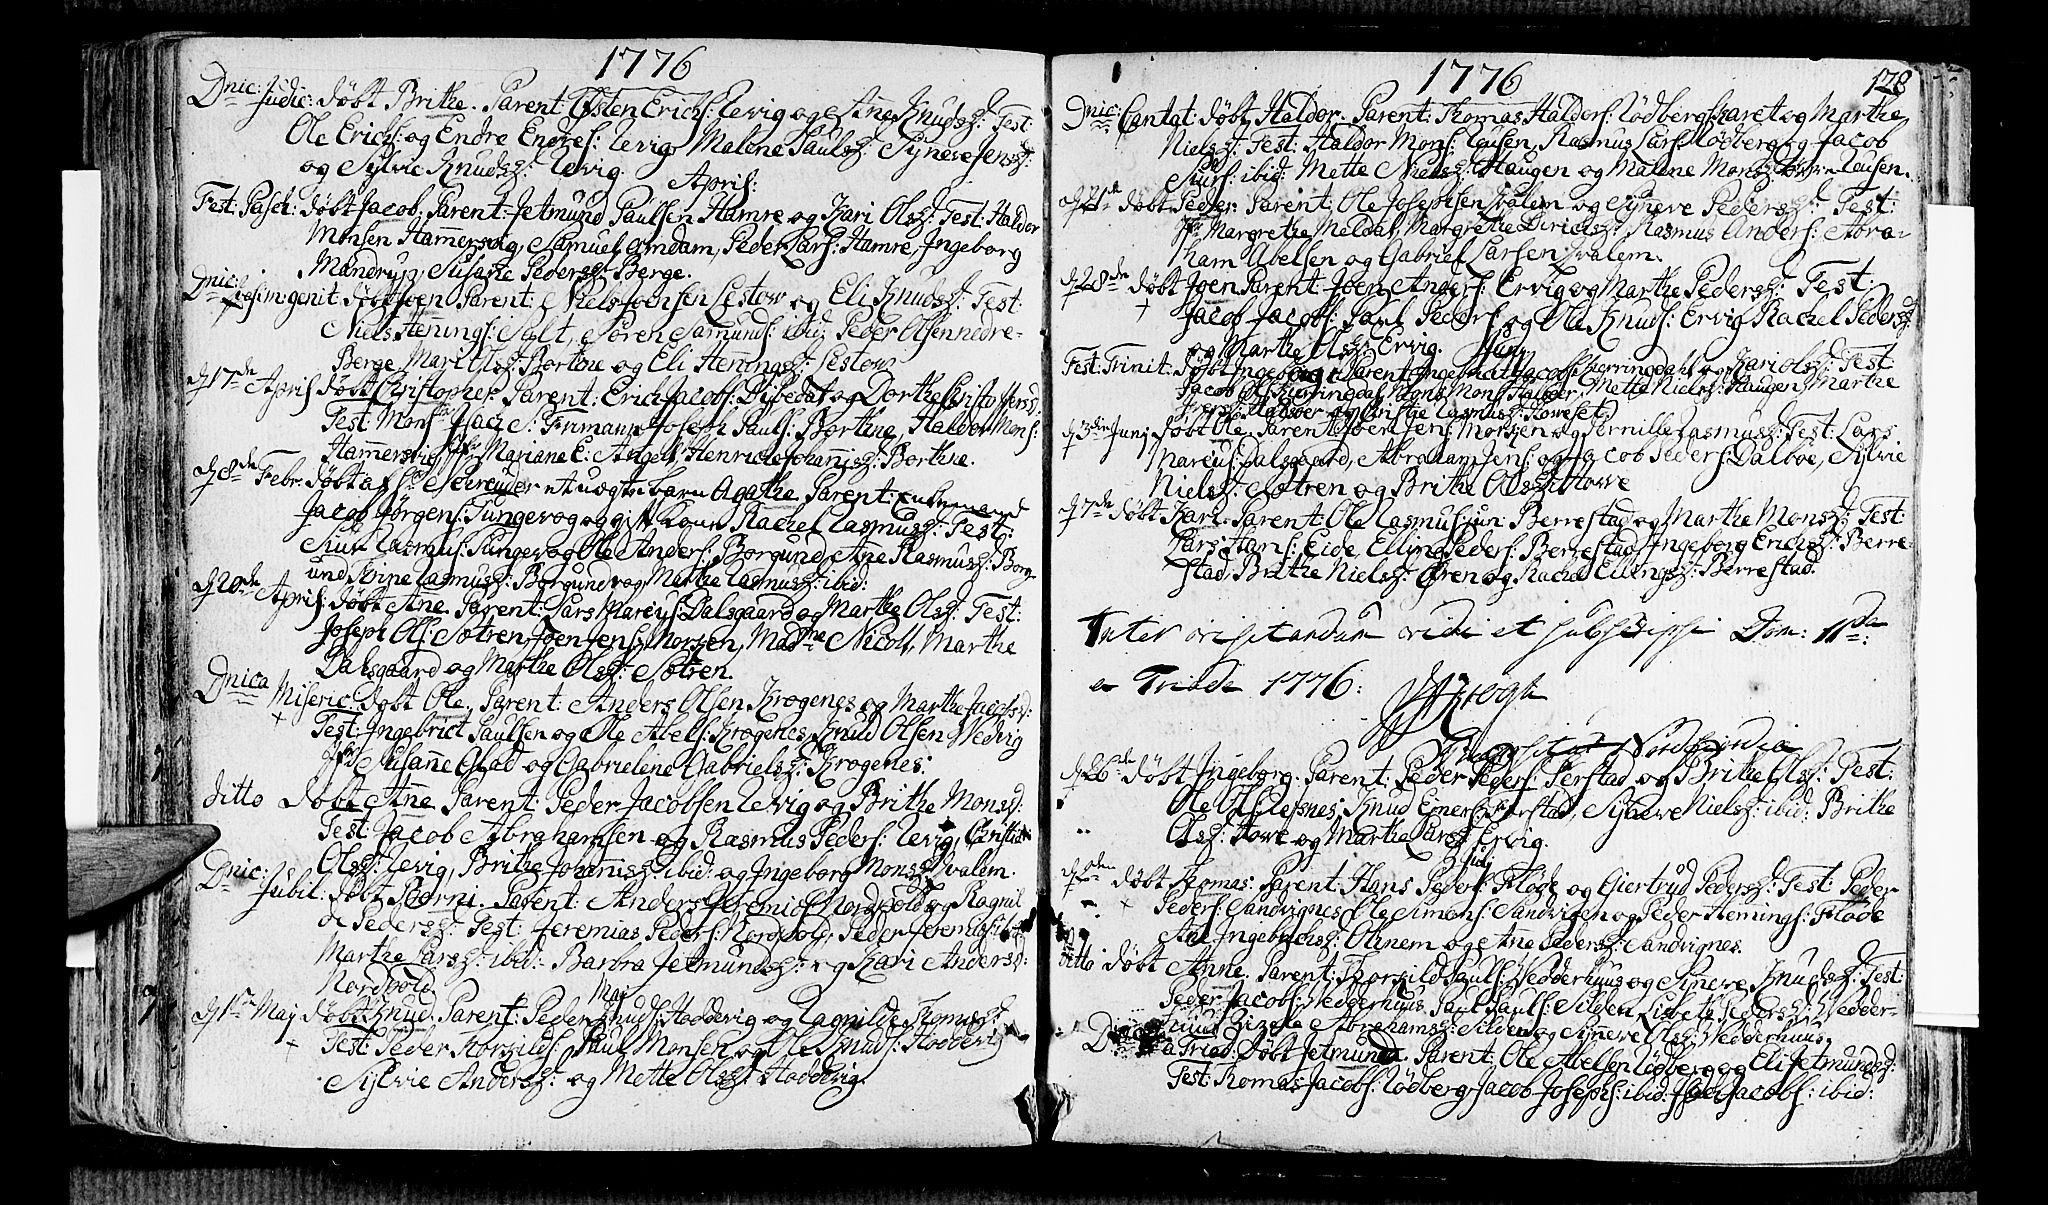 1776
Dnic: Judic: døbt Brithe. Parent: Østen Erichs: Levig og Ane Knudsd: Test:
Ole Erichs: og Endre Endres: Levig, Malene Paulsd: Synneve Jensd:
og Sylvie Knudsd: Levig.
April:
Fest: Pasch: døbt Jacob. Parent: Jetmund Paulsen Hamre og Kari Olsd: Test: Haldor
Monsen Hammersvig, Samuel Arndam, Peder Lars: Hamre, Ingeborg
Mandrup, Susanne Pedersd: Berge.
Dnic: Qvasimogenit: døbt Joen. Parent: Niels Joensen Lestow og Eli Knudsd: Test:
Niels Hennings: Salt, Søren Samunds: ibid: Peder Olsen nedre-
Berge, Mari Olsd: Bortne og Eli Henningsd: Lestow
d 17de April døbt Christopher. Parent: Erich Jacobs: Dibedal og Dorthe Christophersd:
Test: Mons: Jac: S: Frimann, Joseph Pauls: Bortne, Haldor Mons:
Hammersvig, Mariane E: Angell, Henricke Johannisd: Bortne.
d 8de Febr: døbt et uægte barn Agathe. Parent: Enkemand
Jacob Jørgens: Tungevog og gift Kone Rachel Rasmusd: Test:
Siur Rasmus: Tungevog, Ole Anders: Borgund, Ane Rasmusd: Borg-
und, Kirne Rasmusd: Borgund og Marthe Rasmusd: ibid:
d 20de April: døbt Ane. Parent: Lars Marcus: Dalsgaard og Marthe Olsd: Test:
Joseph Ols: Sætren, Joen Jens: Morsen, Madme Nicoll, Marthe
Dalsgaard og Marthe Olsd: Sætren.
Dnica Miseric: døbt Ole. Parent: Anders Olsen Krogenes og Marthe Jacobsd:
+ Test: Ingebrict Paulsen og Ole Abels: Krogenes, Knud Olsen Wedvig
Susanne Glad og Gabrielene Gabrielsd: Krogenes:
ditto døbt Anne. Parent: Peder Jacobsen Levig og Brithe Monsd:
Test: Jacob Abrahamsen og Rasmus Peders: Levig, Christian
Olsd: Levig, Brithe Johannisd: ibid: og Ingeborg Monsd: Hvalem.
Dnic: Jubil: døbt Boerni. Parent: Anders Jeremias: Nordpold og Ragnil-
de Pedersd: Test: Jeremias Peders: Nordpold, Peder Jeremias: ibid:
Marthe Larsd: ibid: Barbra Jetmundsd: og Kari Andersd:
Nordpold.
Maj
d 1ste Maj døbt Knud. Parent: Peder Knuds: Hoddevig og Ragnilde Thomasd:
+ Test: Peder Torkilds: Paul Monsen og Ole Knuds: Hoddevig
Sylvie Andersd: og Mette Olsd: Hoddevig.
1776
128
Dnic: Cantat: døbt Haldor. Parent: Thomas Haldors: Rødbergskaret og Marthe
Nielsd: Test: Haldor Mons: Reusen, Rasmus Lars: Rødberg og Jacob
Siurs: ibid: Mette Nielsd: Haugen og Malene Monsd: Reusen.
d 21de døbt Peder. Parent: Ole Josephsen Hvalem og Synneve Pedersd: Test:
Margrethe Meldal, Margrethe Dirichsd: Rasmus Anders: Abra-
ham Abelsen og Gabriel Larsen Hvalem.
d 28de døbt Joen. Parent: Joen Anders: Ervig og Marthe Pedersd: Test:
+ Jacob Jacobs: Paul Peders: og Ole Knuds: Ervig, Rachel Pedersd:
og Marthe Olsd: Ervig. Juni
Fest: Trinit: døbt Ingeborg. Parent: Ingebrict Jacobs: Kierringdal og Kari Olsd: Test:
Jacob Ols: Kierringdal, Mons Mons: Hauser, Mette Nielsd: Haugen, Marthe
og Brithe Rasmusd: Howeset.
d 3die Junj døbt Ole. Parent: Joen Jens: Morsen og Pernille Rasmusd: Test: Lars
Marcus: Dalsgaard, Abraham Jens: og Jacob Peders: Dalbøe, Sylvie
Nielsd: Sætren og Brithe Olsd: Howe
d 7de døbt Kari. Parent: Ole Rasmus: jun: Berrestad og Marthe Monsd: Test:
Lars Hans: Eide, Elling Peders: Berrestad, Ingeborg Erichsd: Berre-
stad, Brithe Nielsd: Øren og Rachel Ellingsd: Berrestad.
Inter visitandum vidi et subscripsi Dom: 11ma
a Triade 1776:
Krogh
d 26de døbt Ingeborg. Parent: Peder Peders: Ferstad og Brithe Olsd: Test:
Ole Ols: Lesnes, Knud Eners: Ferstad, Synneve Nielsd: ibid: Brithe
Olsd: Howe og Marthe Larsd: Ervig.
Julj
døbt Thomas. Parent: Hans Peders: Fløde og Giertrud Pedersd: Test: Peder
+ Peders: Sandvignes, Ole Simons: Sandvigen og Peder Hemings: Fløde
Ane Ingebrichsd: Otnem og Anne Pedersd: Sandvignes.
ditto døbt Anne. Parent: Torkild Pauls: Wedderhuus og Synneve Knudsd: Test:
Peder Jacobs: Wedderhuus, Paul Pauls: Silden, Lisbeth Pedersd: Wedder-
huus, Zizele Abrahamsd: Silden og Synneve Olsd: Wedderhuus.
a Triad: døbt Jetmund. Parent: Ole Abelsen Rødberg og Eli Jetmundsd:
Test: Thomas Jacobs: Rødberg, Jacob Josephs: ibid: Jacobs: ibid: